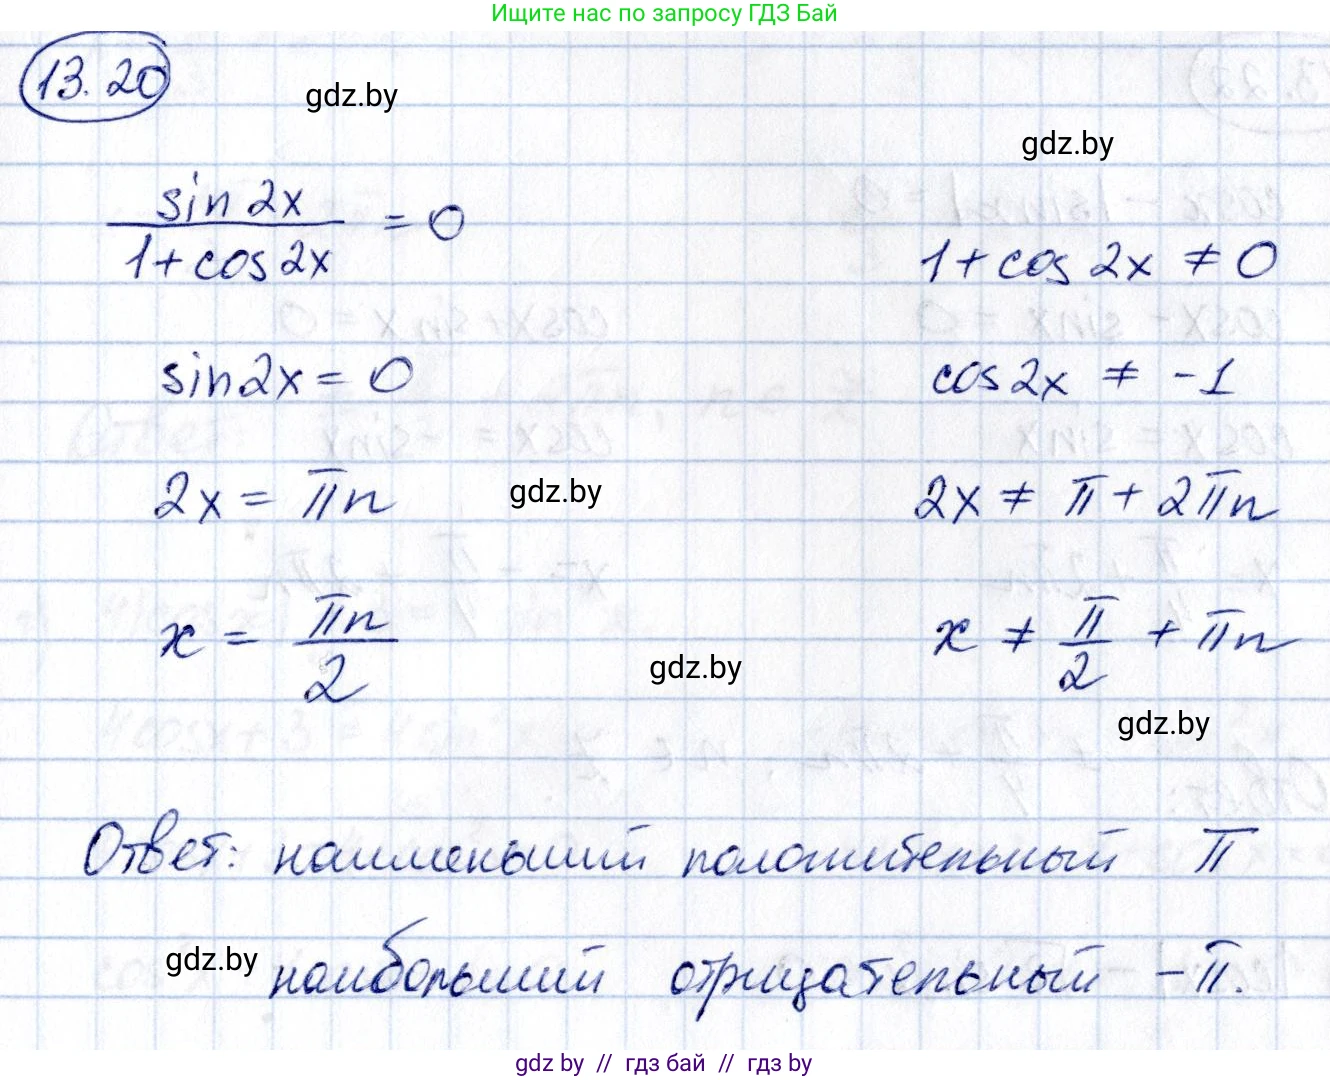 Ищите нас по запросу ГДЗ Бай
13.20
gdz.by
gdz.by
sin 2x / 1 + cos 2x = 0
1 + cos 2x ≠ 0
sin 2x = 0
cos 2x ≠ -1
2x = πn
gdz.by
2x ≠ π + 2πn
x = πn / 2
x ≠ π / 2 + πn
gdz.by
gdz.by
Ответ: наименьший положительный π
gdz.by
наибольший отрицательный -π.
gdz by // гдз бай // гдз by